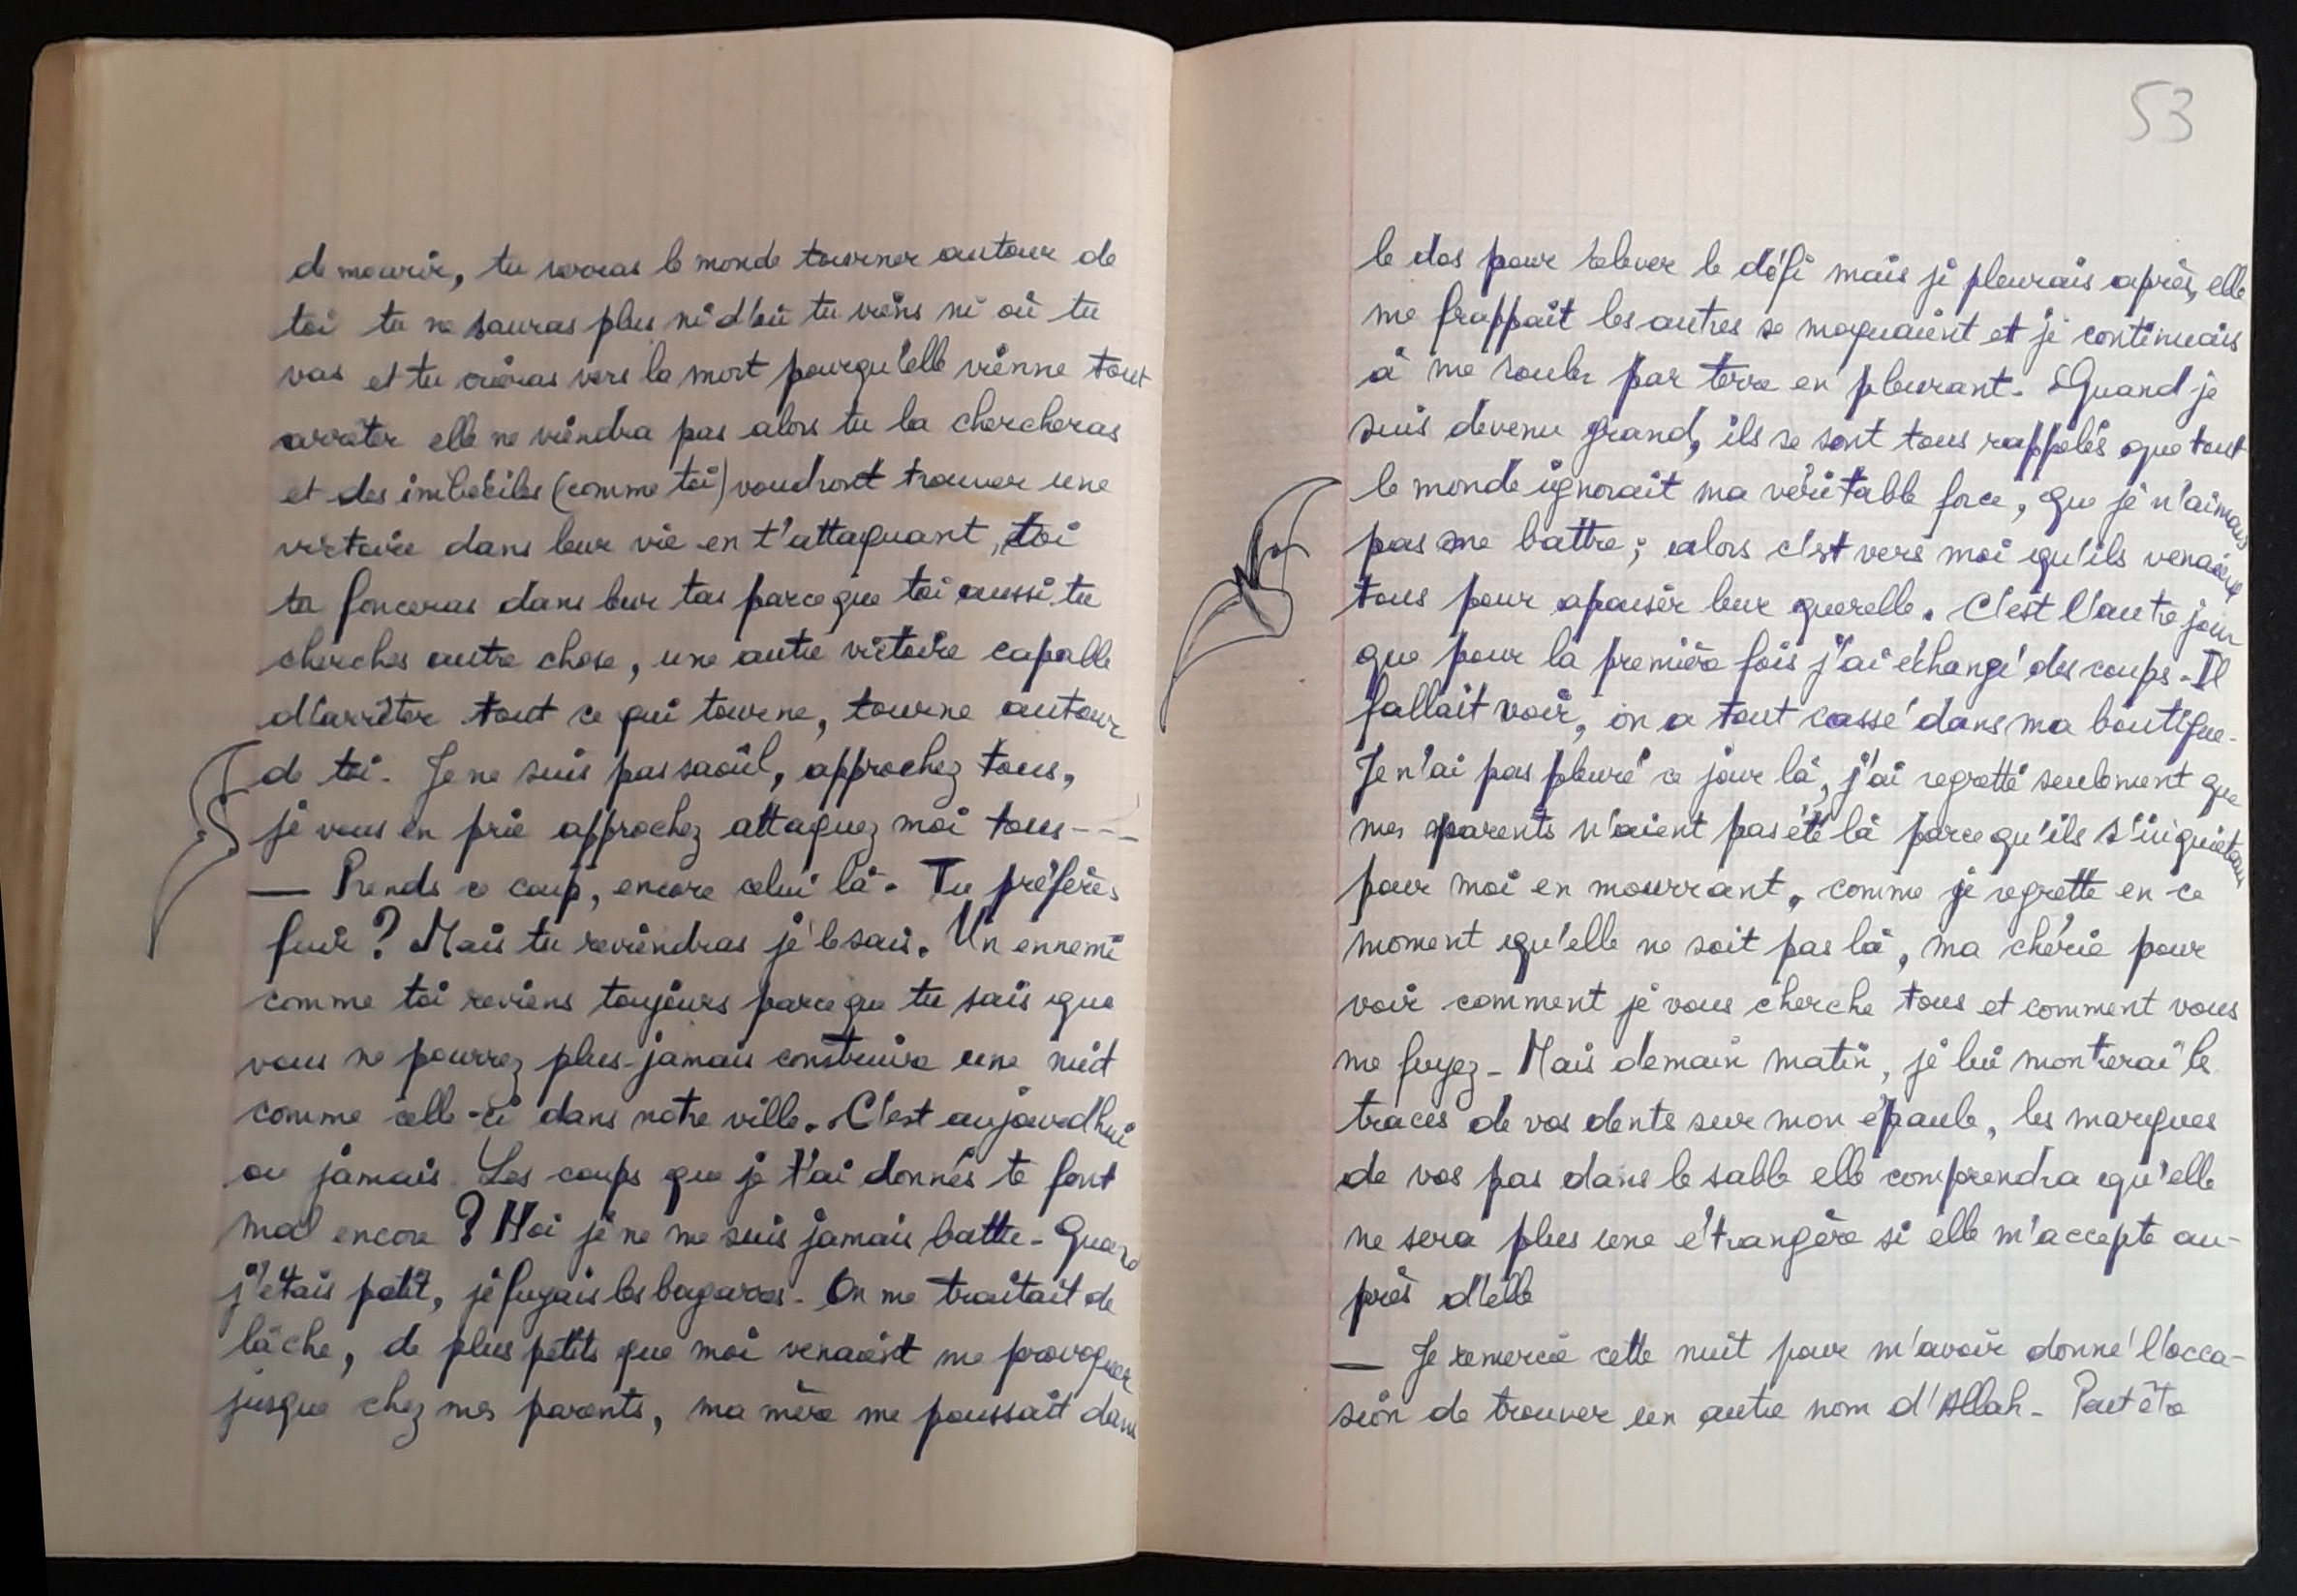 de mourir, tu verras le monde tourner autour de
toi tu ne sauras plus ni d'où tu viens ni où tu
vas et tu crieras vers la mort pourqu'elle vienne tout
arrêter elle ne viendra pas alors tu la chercheras
et des imbéciles (comme toi) voudront trouver une
victoire dans leur vie en t'attaquant, toi
tu fonceras dans leur tas parceque toi aussi tu
cherches autre chose, une autre victoire capable
d'arrêter tout ce qui tourne, tourne autour
de toi. Je ne suis pas saoûl, approchez tous,
je vous en prie approchez attaquez moi tous---
— Prends ce coup, encore celui là. Tu préfères
fuir? Mais tu reviendras je le sais. Un ennemi
comme toi reviens toujours parceque tu sais que
vous ne pourrez plus jamais construire une nuit
comme celle-ci dans notre ville. C'est aujourdhui
ou jamais. Les coups que je t'ai donnés te font
mal encore? Moi je ne me suis jamais battu. Quand
j'étais petit, je fuyais les bagarres. On me traitait de
lâche, de plus petits que moi venaient me provoquer
jusque chez mes parents, ma mère me poussait dans
53
le dos pour relever le défi mais je pleurais après, elle
me frappait les autres se moquaient et je continuais
à me rouler par terre en pleurant. Quand je
suis devenu grand, ils se sont tous rappelés que tout
le monde ignorait ma véritable force, que je n'aimais
pas me battre; alors c'est vers moi qu'ils venaient
tous pour apaiser leur querelle. C'est l'autre jour
que pour la première fois j'ai échangé des coups. Il
fallait voir, on a tout cassé dans ma boutique.
Je n'ai pas pleuré ce jour là, j'ai regretté seulement que
mes parents n'aient pas été là parcequ'ils s'inquiétaient
pour moi en mourrant, comme je regrette en ce
moment qu'elle ne soit pas là, ma chérie pour
voir comment je vous cherche tous et comment vous
me fuyez. Mais demain matin, je lui montrerai les
traces de vos dents sur mon épaule, les marques
de vos pas dans le sable elle comprendra qu'elle
ne sera plus une étrangère si elle m'accepte au-
près d'elle
— Je remercie cette nuit pour m'avoir donné l'occa-
sion de trouver un autre nom d'Allah. Peut être